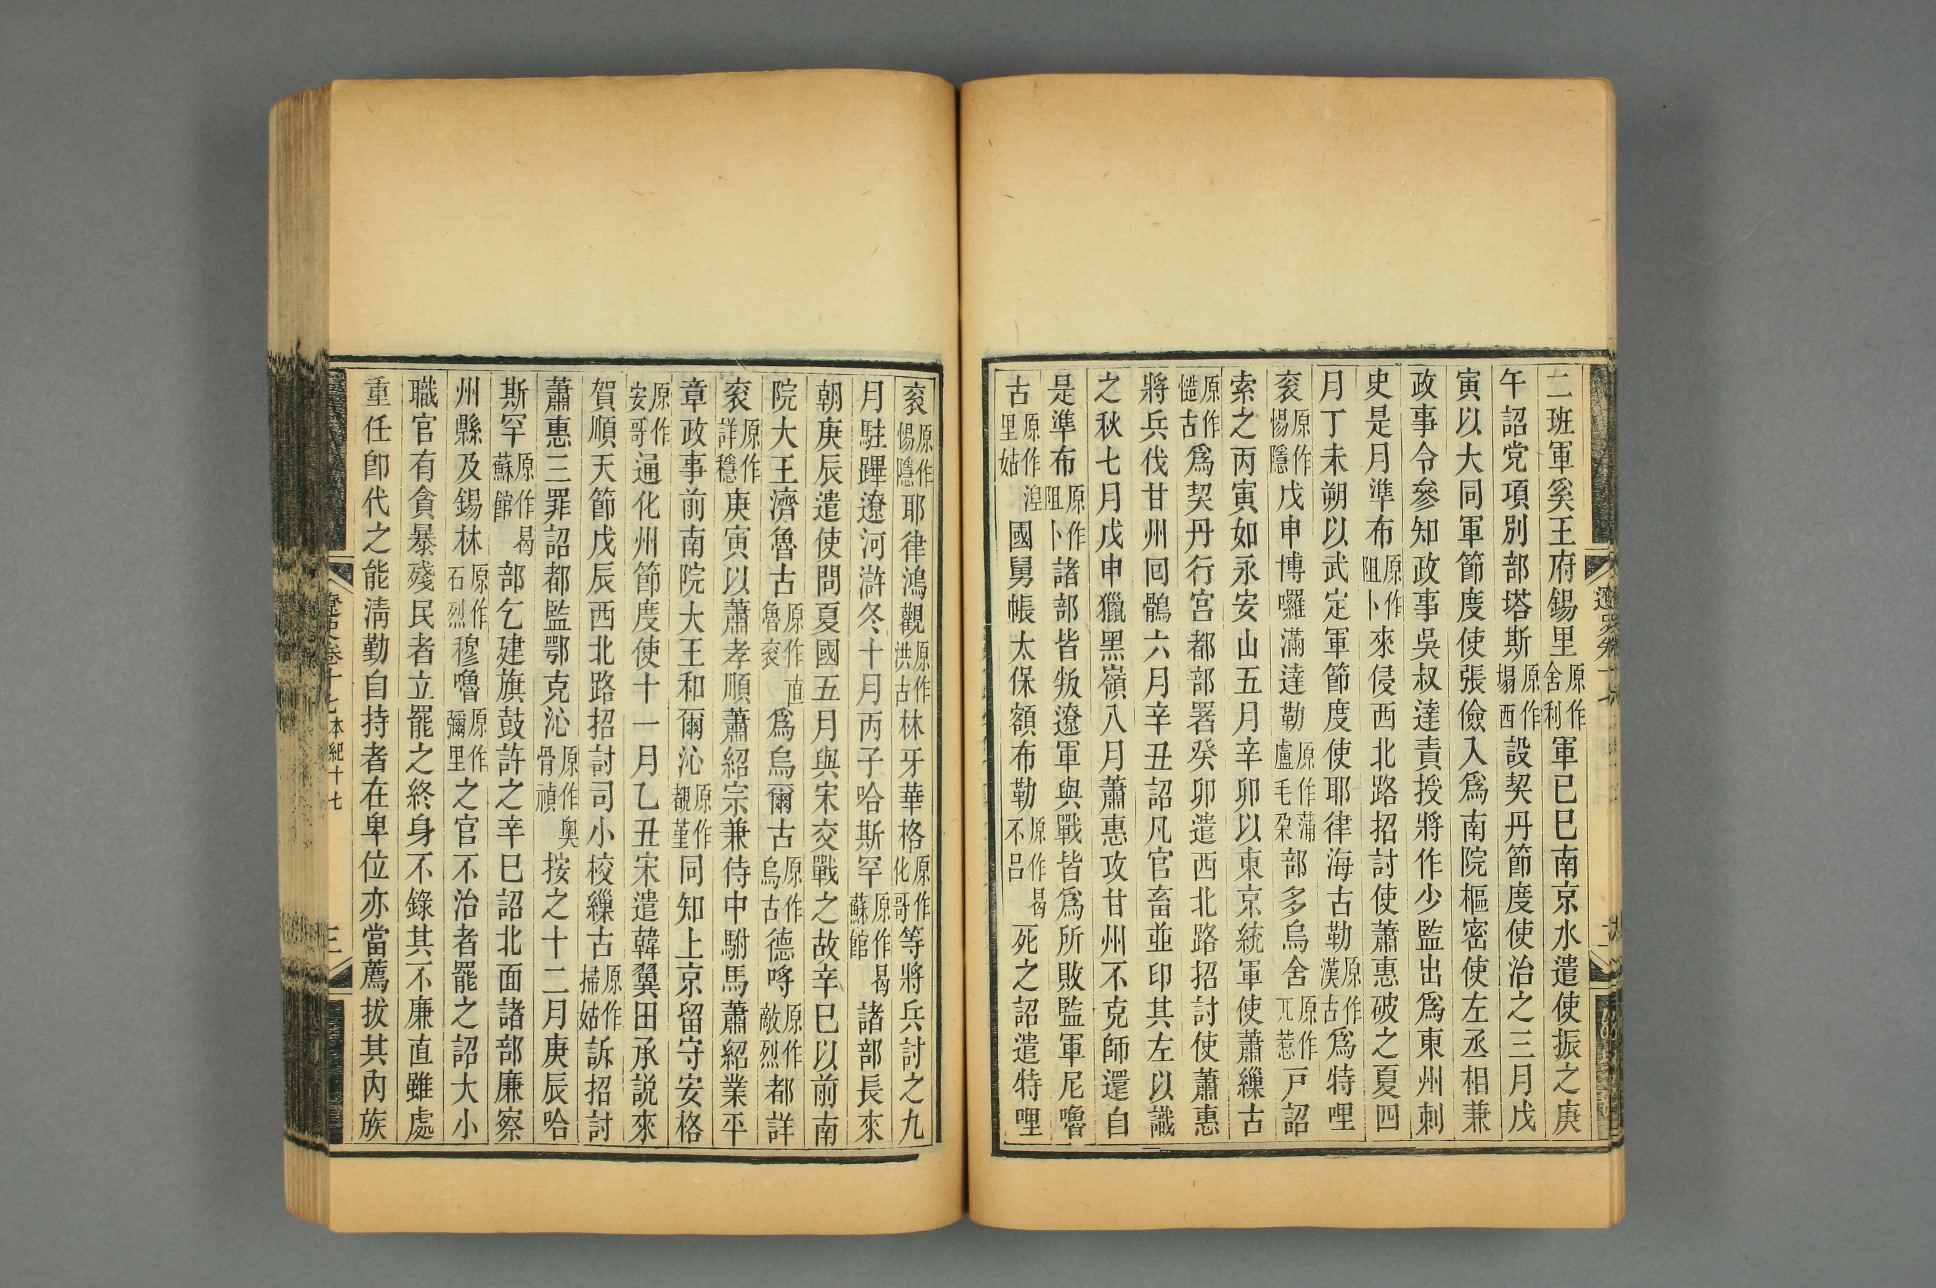 二班軍奚王府錫里原作舍利軍己巳南京水遣使振之庚
午詔党項別部塔斯原作塌西設契丹節度使治之三月戊
寅以大同軍節度使張儉入爲南院樞密使左丞相兼
政事令參知政事吳叔達責授將作少監出爲東州刺
史是月準布原作阻卜來侵西北路招討使蕭惠破之夏四
月丁未朔以武定軍節度使耶律海古勒原作漢古爲特哩
衮原作惕隱戊申博囉滿達勒原作蒲盧毛朶部多烏舍原作兀惹戸詔
索之丙寅如永安山五月辛卯以東京統軍使蕭繅古
原作慥古爲契丹行宮都部署癸卯遣西北路招討使蕭惠
將兵伐甘州回鶻六月辛丑詔凡官畜並印其左以識
之秋七月戊申獵黑嶺八月蕭惠攻甘州不克師還自
是準布原作阻卜諸部皆叛遼軍與戰皆爲所敗監軍尼嚕
古原作湼里姑國舅帳太保額布勒原作曷不呂死之詔遣特哩
衮原作惕隱耶律鴻觀原作洪古林牙華格原作化哥等將兵討之九
月駐蹕遼河滸冬十月丙子哈斯罕原作曷蘇館諸部長來
朝庚辰遣使問夏國五月與宋交戰之故辛巳以前南
院大王濟魯古原作直魯衮爲烏爾古原作烏古德哷原作敵烈都詳
衮原作詳穩庚寅以蕭孝順蕭紹宗兼侍中駙馬蕭紹業平
章政事前南院大王和爾沁原作覩堇同知上京留守安格
原作安哥通化州節度使十一月乙丑宋遣韓翼田承說來
賀順天節戊辰西北路招討司小校繅古原作掃姑訴招討
蕭惠三罪詔都監鄂克沁原作奧骨禎按之十二月庚辰哈
斯罕原作曷蘇館部乞建旗鼓許之辛巳詔北面諸部廉察
州縣及錫林原作石烈穆嚕原作彌里之官不治者罷之詔大小
職官有貪暴殘民者立罷之終身不錄其不廉直雖處
重任卽代之能淸勤自持者在卑位亦當薦拔其內族
遼史卷十七 本紀十七 三